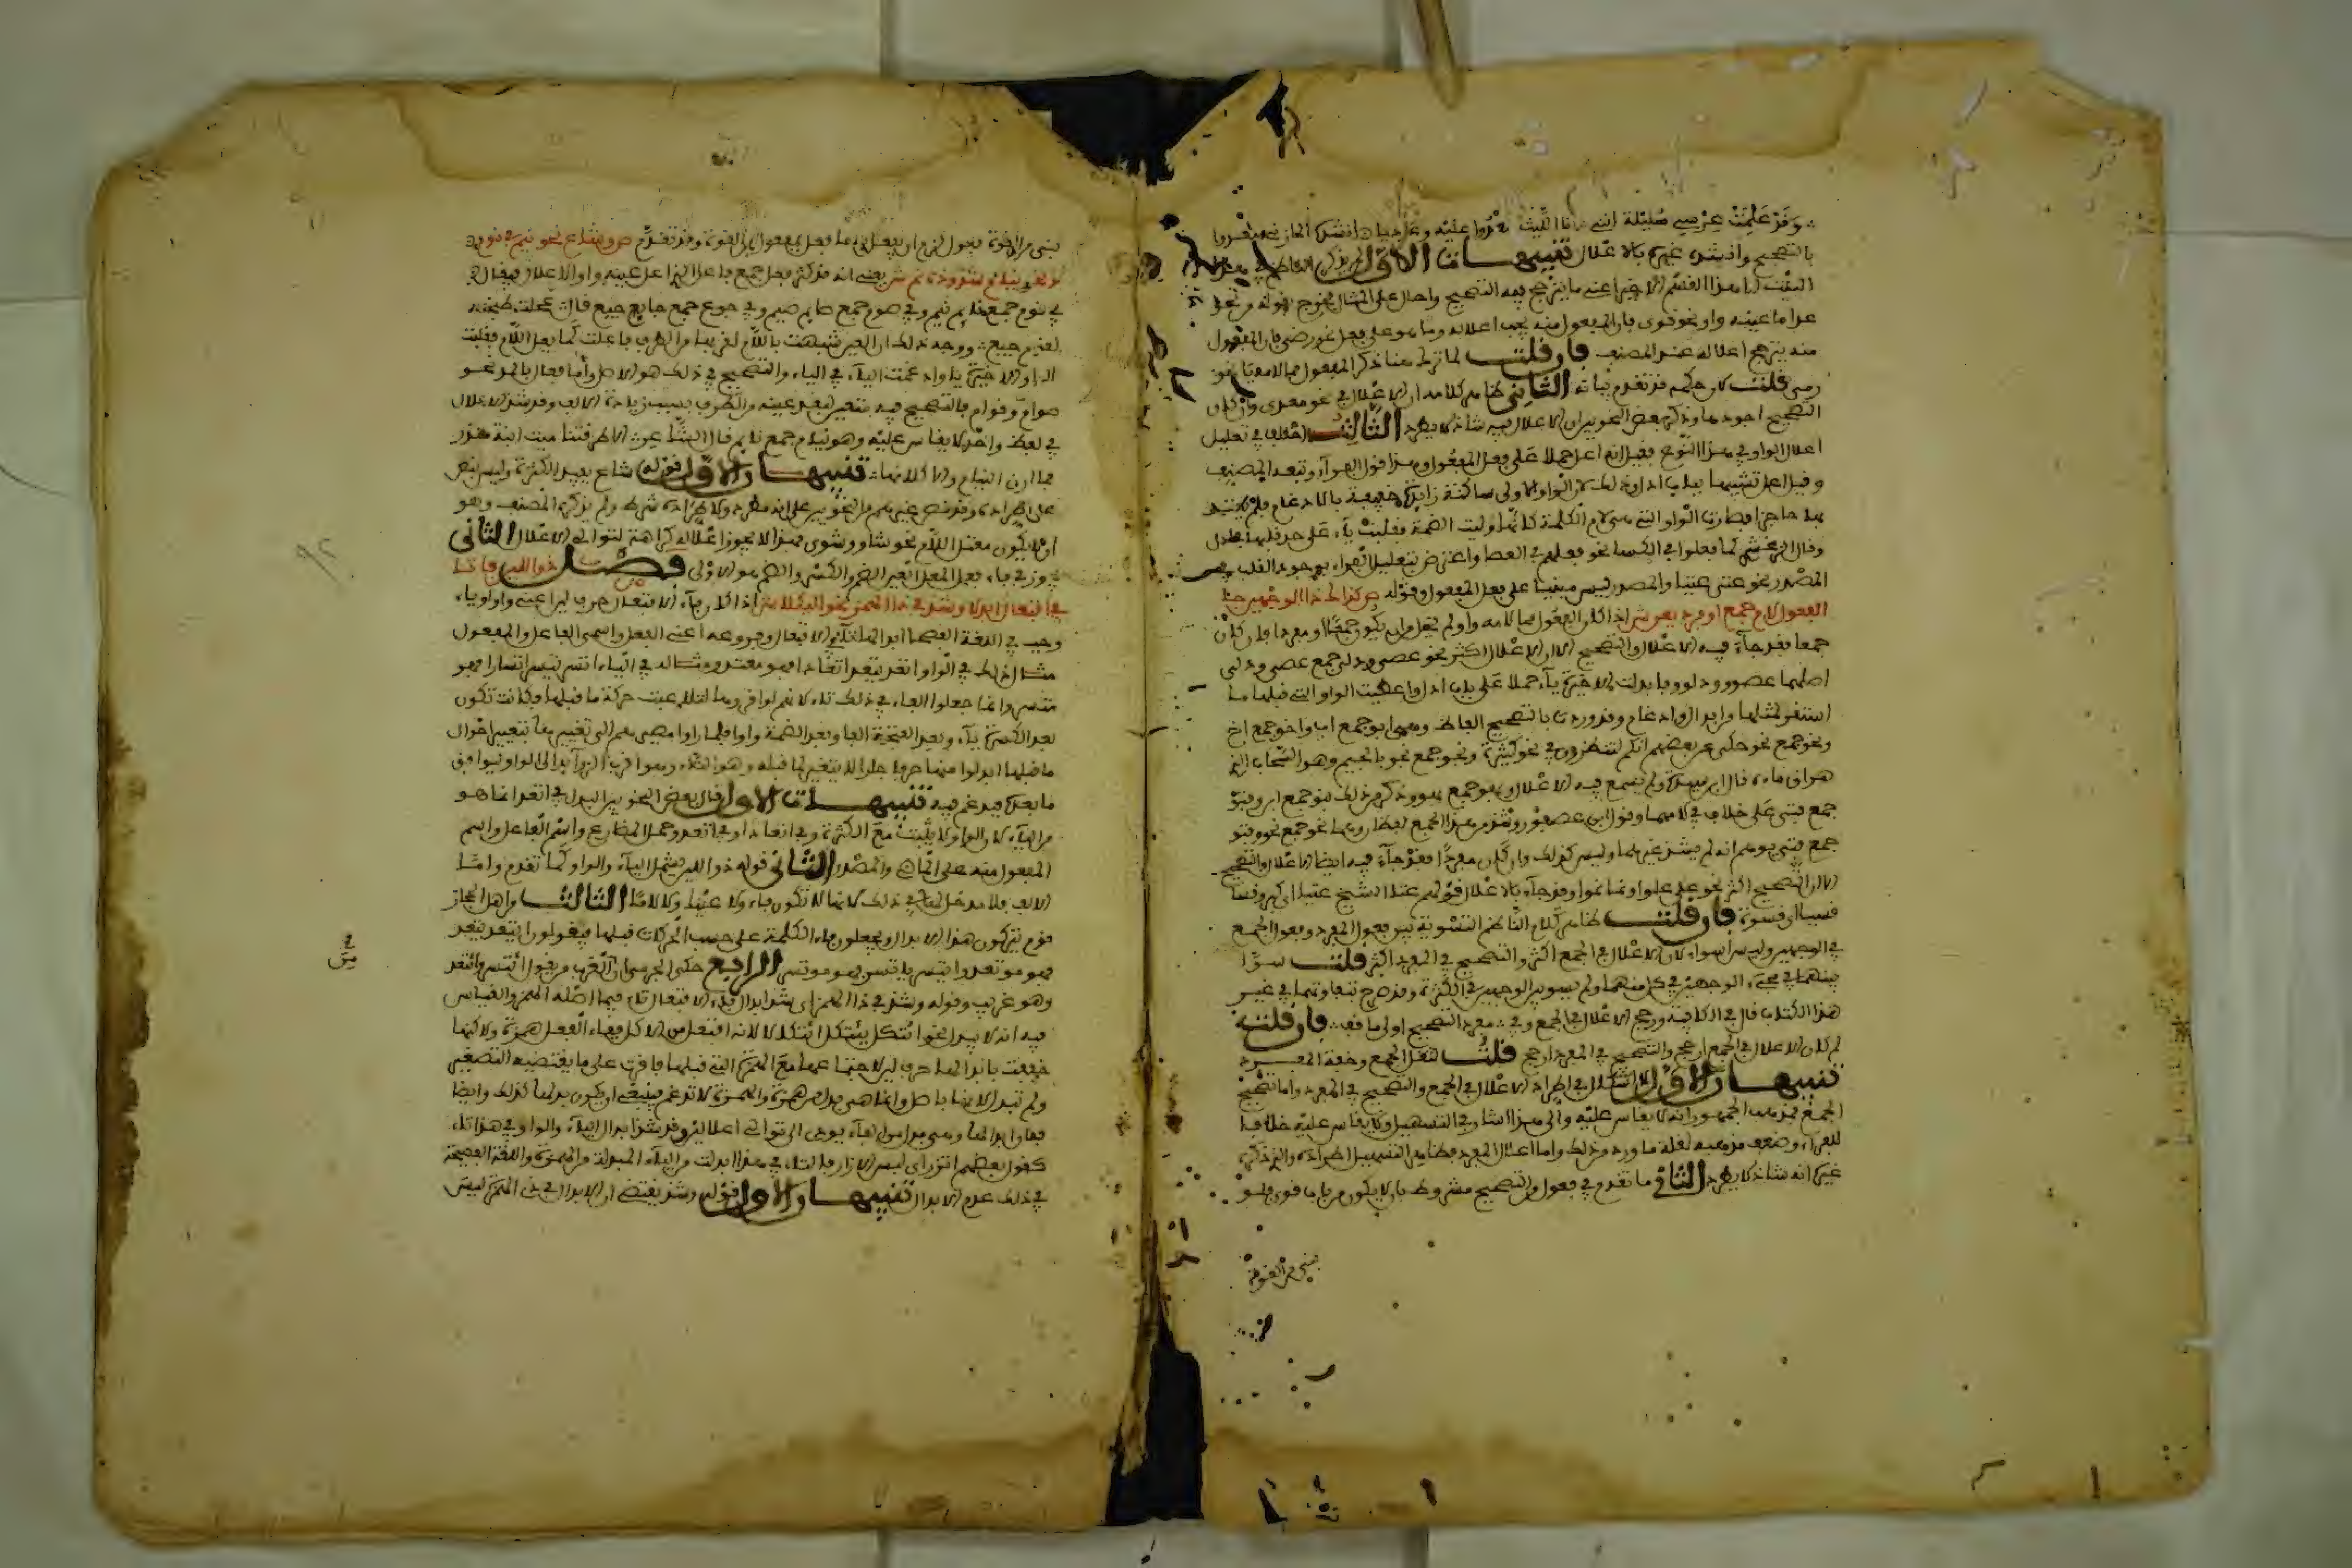 وقد علمت عرسي مليكة أنني أنا الليث معدوا عليه وعاديا أنشده المازني معدوا
بالتصحيح وأنشده غيره بالاعلال تنبيهات الأول لم يذكر الناظم
البيت من هذا القسم الاخير اعني ما يترجح فيه التصحيح واحال على المثال فخرج بقوله من نحو
عدا ما عينه واو نحو قوى فان المفعول منه يجب اعلاله وما هو على فعل نحو رضي فان المفعول
منه يترجح اعلاله عند المصنف فان قلت لم ترك هنا ذكر المفعول مما لامه ياء نحو
رمى قلت لان حكمه قد تقدم بيانه الثاني ظاهر كلامه ان الاعلال في نحو معدى وان كان
التصحيح اجود منه وذكر بعض النحويين ان الاعلال فيه شاذ لا يطرد الثالث اختلف في تعليل
اعلال الواو في هذا النوع فقيل انه اعل حملا على فعل المفعول وهذا قول الفراء وتبعه المصنف
وقيل اعل تشبيها بباب ادل وذلك لان الواو الاولى ساكنة زائدة خفيفة بالادغام فلم يعتد
بها حاجزا فصارت الواو التي هي لام الكلمة كانها وليت الضمة فقلبت ياء على حد قلبها في ادل
وقال الزمخشري كما فعلوا في الكسا نحو فعلهم في العصا واعترض تعليل الفراء بوجود القلب في
المصدر نحو عتى عتيا والمصدر ليس مبنيا على فعل المفعول وقوله ص كذاك ذا الوجهين جا
الفعول لام جمع او فرد يعن ش اذا كان الفعول مما لامه واو لم يخل من ان يكون جمعا او مفردا فان كان
جمعا فقد جاء فيه الاعلال والتصحيح الا ان الاعلال اكثر نحو عصى ودلى جمع عصى ودلى
اصلهما عصوو ودلوو فابدلت الاخيرة ياء حملا على باب ادل واعطيت الواو التي قبلها ما
استقر لمثلها من ابدال وادغام وقد وردت بالتصحيح الفاظ وهي ابو جمع اب واخو جمع اخ
ونحو جمع نحو حكى عن بعضهم انكم لتنظرون في نحو كثيرة ونجو جمع نجو بالجيم وهو السحاب الذي
هراق ماءه قال ابن سيده ولم يسمع فيه الاعلال وبهو جمع بهو وذكر من ذلك بنو جمع ابن وفتو
جمع فتى على خلاف في لامهما وقول ابن عصفور وشذ من هذا الجمع لفظان وهما نحو جمع نحو وفتو
جمع فتى يوهم انه لم يشذ غيرهما وليس كذلك وان كان مفردا فقد جاء فيه ايضا الاعلال والتصحيح
الا ان التصحيح اكثر نحو علا علوا ونما نموا وقد جاء بالاعلال قولهم عتا الشيخ عتيا اي كبر وقسا
قسيا اي قسوة فان قلت ظاهر كلام الناظم التسوية بين فعول المفرد وفعول الجمع
في الوجهين وليسا سواء لان الاعلال في الجمع اكثر والتصحيح في المفرد اكثر قلت سوا
بينهما في مجيء الوجهين في كل منهما ولم يسو بين الوجهين في الكثرة وقد صرح بتفاوتهما في غير
هذا الكتاب قال في الكافية ورجح الاعلال في الجمع وفي مفرد التصحيح اولى ما قفي فان قلت
لم كان الاعلال في الجمع ارجح والتصحيح في المفرد ارجح قلت لثقل الجمع وخفة المفرد
تنبيهان الاول لا اشكال في اطراد الاعلال في الجمع والتصحيح في المفرد واما تصحيح
الجمع فمذهب الجمهور انه لا يقاس عليه والى هذا اشار في التسهيل ولا يقاس عليه خلافا
للفراء وضعف مذهبه لقلة ما ورد من ذلك واما اعلال المفرد فظاهر التسهيل اطراده والذي ذكره
غيره انه شاذ لا يطرد الثاني ما تقدم في فعول من التصحيح مشروط بان لا يكون من باب قوى فلو
بني من القوة
بني من القوة فعول لزم ان يفعل به ما فعل بمفعول من القوة وقد تقدم ص وشاع نحو نيم في نوم
ونحو نيام شذوذه نمي ش يعني انه قد كثر فعل جمع فاعل الذي عينه واو الاعلال فيقال
في نوم جمع نائم نيم وفي صوم جمع صائم صيم وفي جوع جمع جايع جيع قال عجلت طبخته
لقوم جيع ووجه ذلك ان العين شبهت باللام لقربها من الطرف فاعلت كما تعل اللام فقلبت
الواو الاخيرة ياء وادغمت الياء في الياء والتصحيح في ذلك هو الاصل واما فعال بالمد نحو
صوام وقوام فالتصحيح فيه متعين لبعد عينه من الطرف بسبب زيادة الالف وقد شذ الاعلال
في لفظ واحد لا يقاس عليه وهو نيام جمع نائم قال الشاعر الا طرقتنا مية ابنة منذر
فما ارق النيام الا كلامها تنبيهان الاول قوله شاع يفيد الكثرة وليس بنص
على اطراده وقد نص غيره من النحويين على انه مطرد ولاطراده شرط ولم يذكره المصنف وهو
ان لا يكون معتل اللام نحو شاو وشوى فهذا لا يجوز اعلاله كراهة لتوالي الاعلال الثاني
يجوز في فاء فعل المعل العين الضم والكسر والضم هو الاولى فصل ص ذو اللين فا تا
في افتعال ابدلا وشذ في ذي الهمز نحو ائتكلا ش اذا كان فاء الافتعال حرف لين اعني واوا وياء
وجب في اللغة الفصحى ابدالها تاء في الافتعال وفروعه اعني الفعل واسمي الفاعل والمفعول
مثال ذلك في الواو اتعد يتعد اتعادا فهو متعد ومثاله في الياء اتسر يتسر اتسارا فهو
متسر وانما جعلوا الفاء في ذلك تاء لانهم لو اقروها لتلاعبت حركة ما قبلها فكانت تكون
بعد الكسرة ياء وبعد الفتحة الفا وبعد الضمة واوا فلما راوا مصيرهم الى تغييرها بتغيير احوال
ما قبلها ابدلوا منها حرفا جلدا لا يتغير لما قبله وهو التاء وهو اقرب الزوائد الى الواو ليوافق
ما بعده فيدغم فيه تنبيهات الاول قال بعض النحويين البدل في اتعد انما هو
من الياء لان الواو لا تثبت مع الكسرة وفي اتعادا وفي اتعد وحمل المضارع واسم الفاعل واسم
المفعول منه على الماضي والمصدر الثاني قوله ذو اللين يشمل الياء والواو كما تقدم واما
الالف فلا مدخل لها في ذلك لانها لا تكون فاء ولا عينا ولا لاما الثالث من اهل الحجاز
قوم يتركون هذا الابدال ويجعلون فاء الكلمة على حسب الحركات قبلها فيقولون ايتعد ياتعد
فهو موتعد وايتسر ياتسر فهو موتسر الرابع حكى الجرمي ان من العرب من يقول ائتسر وائتعد
وهو غريب وقوله وشذ في ذي الهمز اي شذ ابدال فاء الافتعال تاء فيما اصله الهمز والقياس
فيه انه لا يبدل نحو ائتكل يئتكل ائتكالا لانه افتعل من الاكل ففاء الفعل همزة ولكنها
خففت بابدالها حرف لين لاجتماعها مع الهمزة التي قبلها فاقرت على ما يقتضيه التصغير
ولم تبدل لانها باصل وانما هي بدل من همزة والهمزة لا تدغم فينبغي ان يكون بدلها كذلك وايضا
فلو ابدلها وهي بدل من فاء يودى الى توالي اعلالين وقد شذ ابدال الياء والواو في هذا تاء
كقول بعضهم اتزر اي لبس الازار فالتاء في هذا ابدلت من الياء المبدلة من الهمزة واللغة الفصيحة
في ذلك عدم الابدال تنبيهان الاول قوله وشذ يقتضي ان الابدال في ذي الهمز ليس